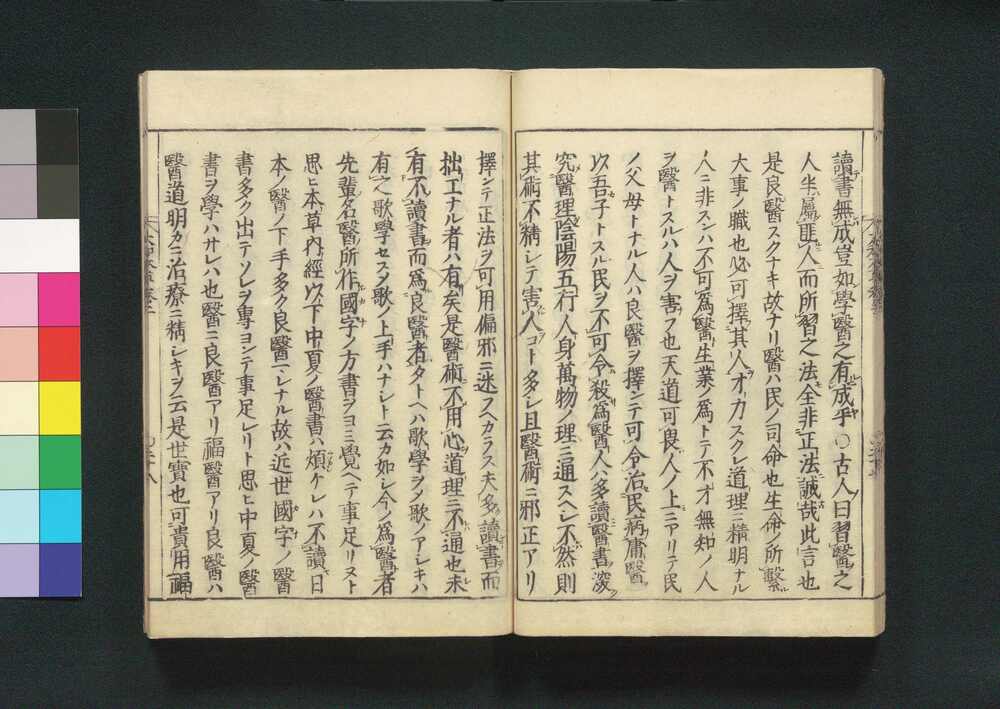 讀書無成豈如學醫之有成乎○古人曰習醫之
人半屬匪人而所習之法全非正法誠哉此言也
是良醫スクナキ故ナリ醫ハ民ノ司命也生命ノ所繫
大事ノ職也必可擇其人才力スクレ道理ニ精明ナル
人ニ非スンハ不可爲醫生業ノ爲トテ不才無知ノ人
ヲ醫トスルハ人ヲ害フ也天道可畏人ノ上ニアリテ民
ノ父母トナル人ハ良醫ヲ擇ンテ可令治民病庸醫
以吾子トスル民ヲ不可令殺爲醫人ハ多讀醫書深
究醫理陰陽五行人身萬物ノ理ニ通スヘシ不然則
其術不精シテ害人コト多シ且醫術ニ邪正アリ
擇ンテ正法ヲ可用偏邪ニ迷フヘカラス夫多讀書而
拙工ナル者ハ有矣是醫術不用心道理ニ不通也未
有不讀書而爲良醫者タトヘハ歌學ヲシメ歌ノアシキハ
有之歌學セスメ歌ノ上手ハナシト云カ如シ今ノ爲醫者
先輩名醫所作國字ノ方書ヲヨミ覺ヘテ事足リヌト
思ヒ本草內經以下中夏ノ醫書ハ煩ケレハ不讀日
本ノ醫ノ下手多ク良醫マレナル故ハ近世國字ノ醫
書多ク出テソレヲ專ヨンテ事足レリト思ヒ中夏ノ醫
書ヲ學ハサレハ也醫ニ良醫アリ福醫アリ良醫ハ
醫道明カニ治療ニ精シキヲ云是世寶也可貴用福